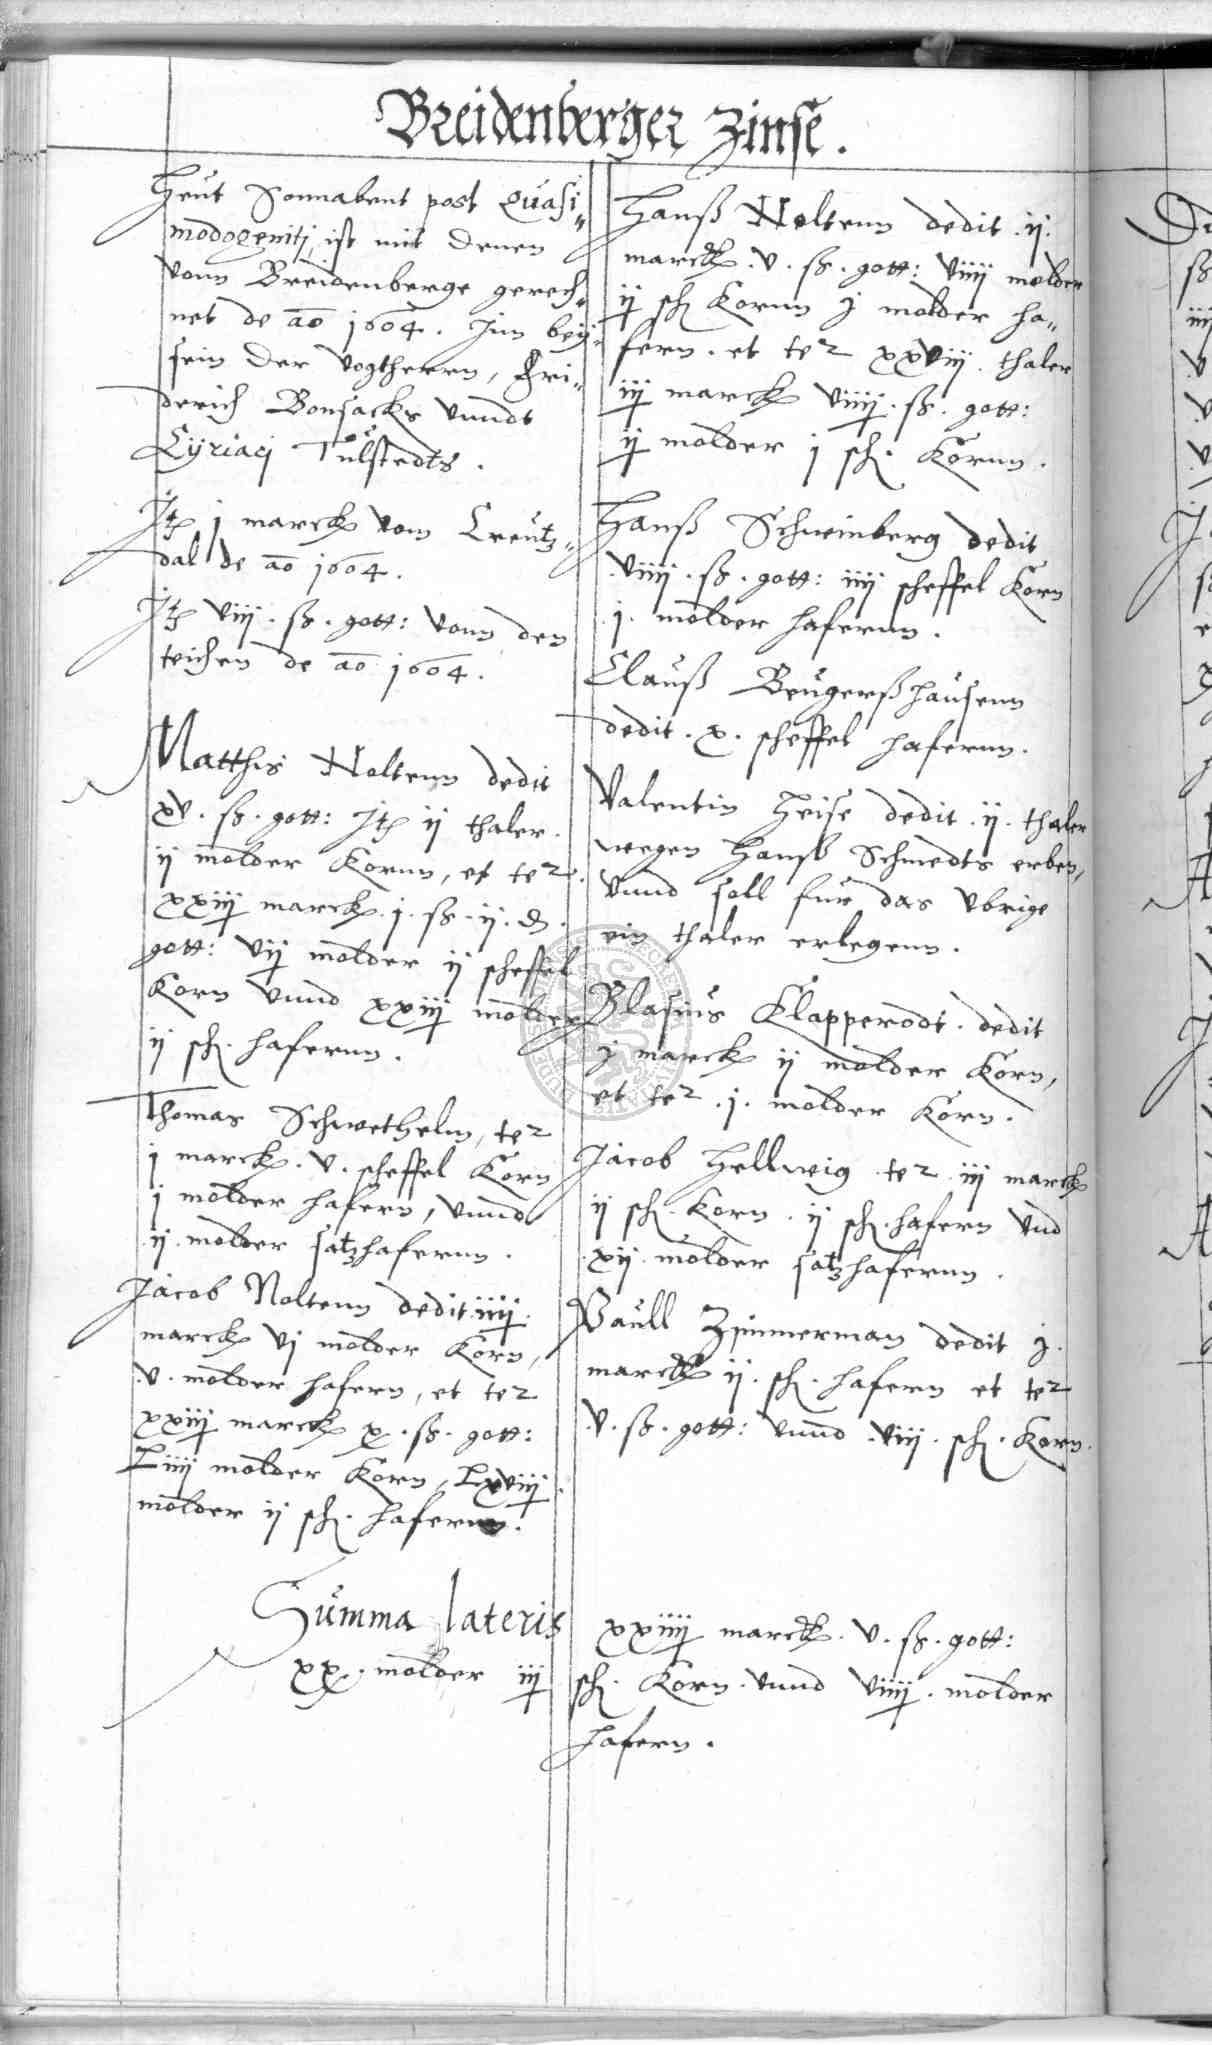 Breidenberger Zinse.
Heut Sonnabent post Quasi=
modogenitj, ist mit denen
vonn Breidenberge gerech=
net de ao 1604. Jnn bey=
sein der vogtherrn, Fri=
derich Bonsacks vnndt
Cyriacj Tülstedts.
Jt j marck vom Creutz=
dal de ao 1604.
Jt viij. ß. gott: vonn den
teichen de ao 1604.
Matthis Noltenn dedit
xv. ß. gott: Jt ij thaler.
ij molder Kornn, et ter.
xxiij marck. j. ß. ij. d.
gott: vij molder ij scheffel
Korn vnnd xxiij molder
ij sch. hafernn.
Thomas Schwethelm, ter
j marck. v. scheffel Korn
j molder hafern, vnnd
ij. molder satzhafernn.
Jacob Noltenn dedit iiij.
marck vj molder Korn,
v. molder hafern, et ter
xxiij marck x. ß. gott:
Liiij molder Korn, Lxviij.
molder ij sch. hafernn.
Hanß Noltenn dedit. ij.
marck. v. ß. gott: viiij molder
ij sch Kornn j molder ha=
fern. et ter xxviij. thaler
iij marck viiij. ß. gott:
ij molder j sch. Kornn.
Hanß Schweinberg dedit
viiij. ß. gott: iiij scheffel Korn
j. molder hafernn.
Clauß Brugerßhausenn
dedit. x. scheffel hafernn.
Valentin Heise dedit. ij. thaler
wegen Hanß Schmedts erben,
vnnd soll fur das vbrige
ein thaler erlegenn.
Blasius Klapperodt. dedit
j marck ij molder Korn,
et ter. j. molder Korn.
Jacob Hellwig ter. iij marck
ij sch. Korn. ij sch. hafern vnd
xij. molder satzhafernn.
Paull Zimmerman dedit j.
marck ij. sch. hafern et ter
v. ß. gott: vnnd. viij. sch. Korn.
Summa lateris xxiiij marck. v. ß. gott:
xx. molder iij sch. Korn. vnnd viiij. molder
hafern.